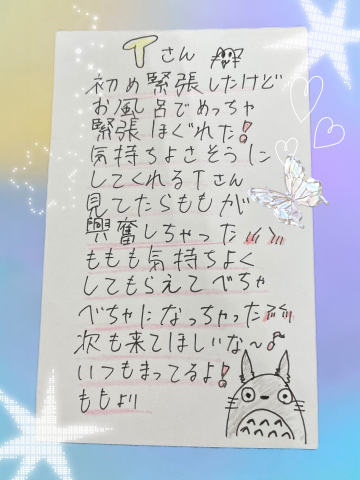 Tさん
初め緊張したけど
お風呂でめっちゃ
緊張ほぐれた!
気持ちよさそうに
してくれるTさん
見てたらももが
興奮しちゃった
ももも気持ちよく
してもらえてべちゃ
べちゃになっちゃった
次も来てほしいな〜♪
いつもまってるよ!
ももより